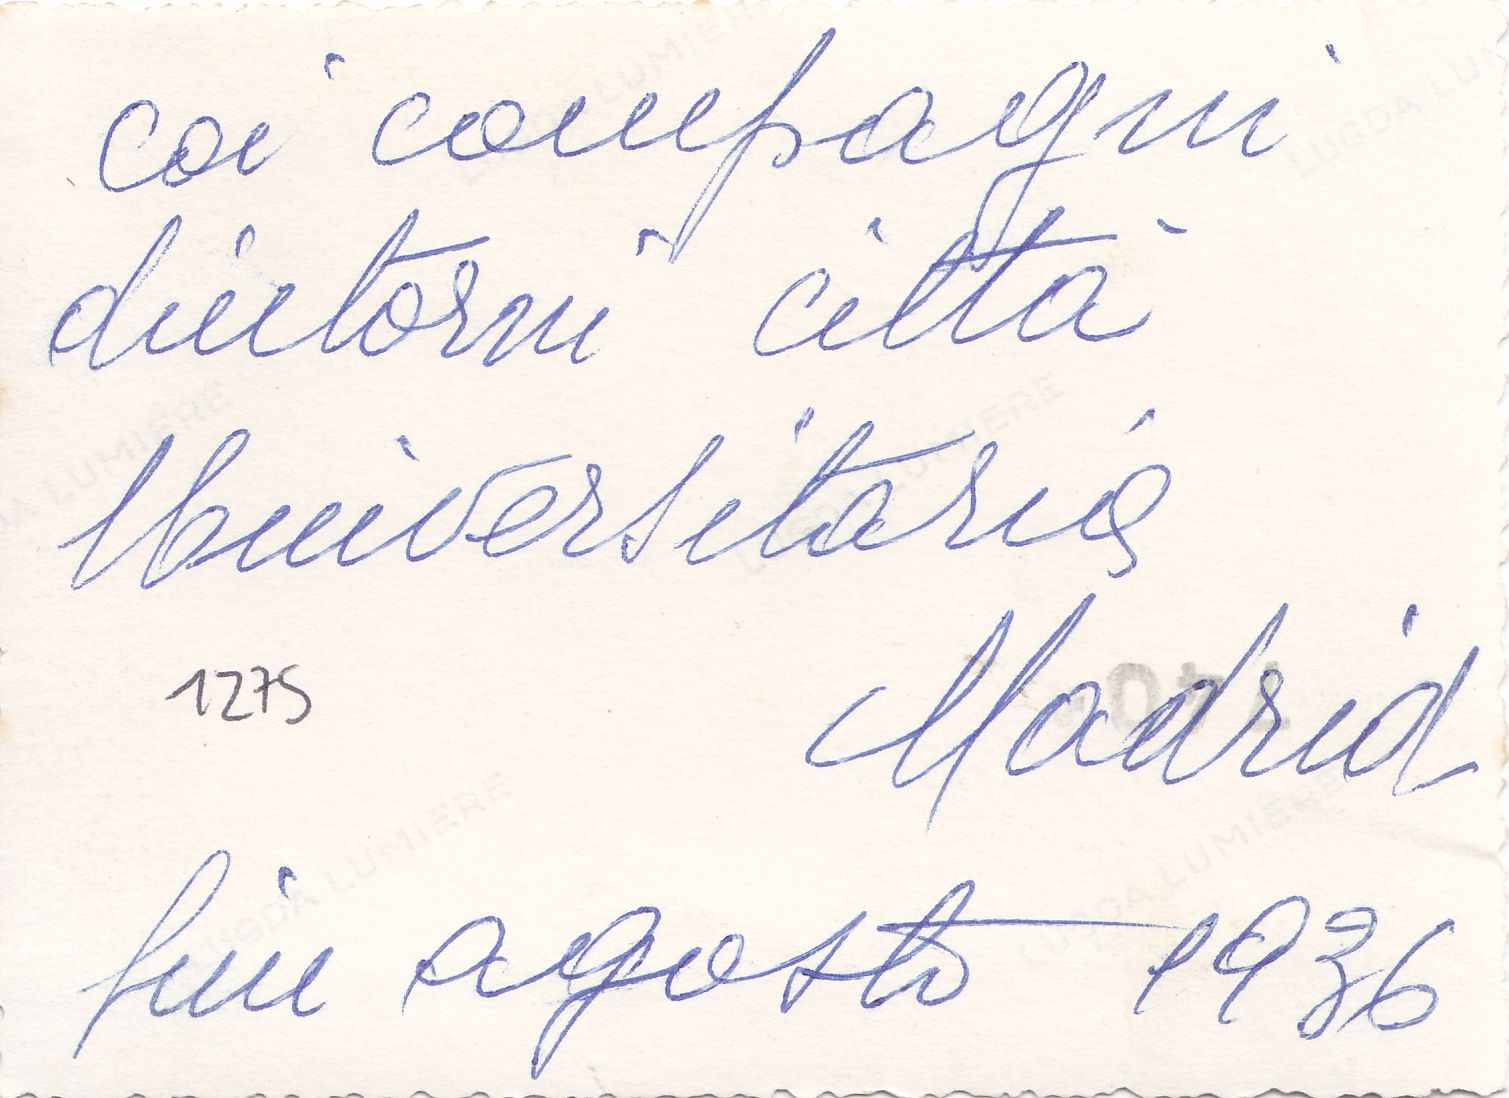 coi compagni
dintorni città
Universitaria
1275
Madrid
fini agosto 1936
LUGDA LUMIERE
LUGDA LUMIERE
LUGDA LUMIERE
LUGDA LUMIERE
LUGDA LUMIERE
LUGDA LUMIERE